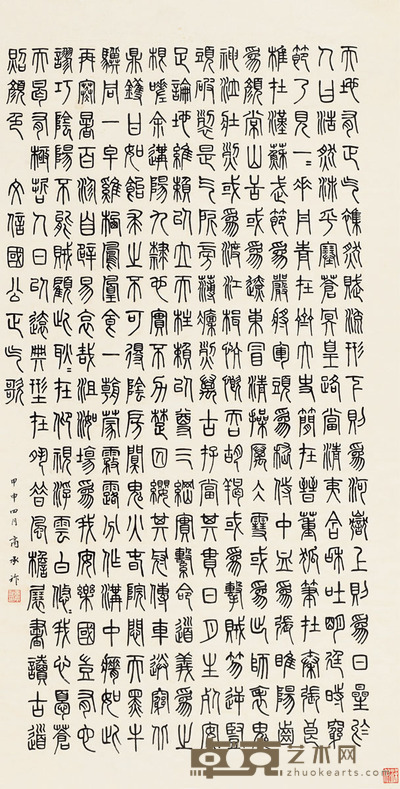 天地有正气雜然賦流形下則為河嶽上則為日星於
人曰浩然沛乎塞蒼冥皇路當清夷含和吐明廷時窮
節乃見一一垂丹青在齊太史簡在晉董狐筆在秦張良
椎在漢蘇武節為嚴將軍頭為嵇侍中血為張睢陽齒
為顏常山舌或為遼東冒清操厲仌雪或為出師表鬼
神泣壯烈或為渡江楫忼慨吞胡羯或為擊賊笏逆豎
頭破裂是气所旁薄凜烈萬古存當其貫日月生死安
足論地維賴以立天柱賴以尊三綱實繫命道義為之
根嗟余遘陽九隸也實不力楚囚纓其冠傳車送窮北
鼎鑊甘如飴求之不可得陰房闃鬼火春院閟天黑牛
驥同一皁雞棲鳳凰食一朝蒙霧露分作溝中瘠如此
再寒暑百沴自辟易哀哉沮洳場為我安樂國豈有他
謬巧陰陽不能賊顧此耿耿在仰視浮雲白悠悠我心悲蒼
天曷有極哲人日以遠典型在夙昔風檐展書讀古道
照顏色 文信國公正气歌
甲申四月 商承祚
卓克艺术网
zhuokearts.com